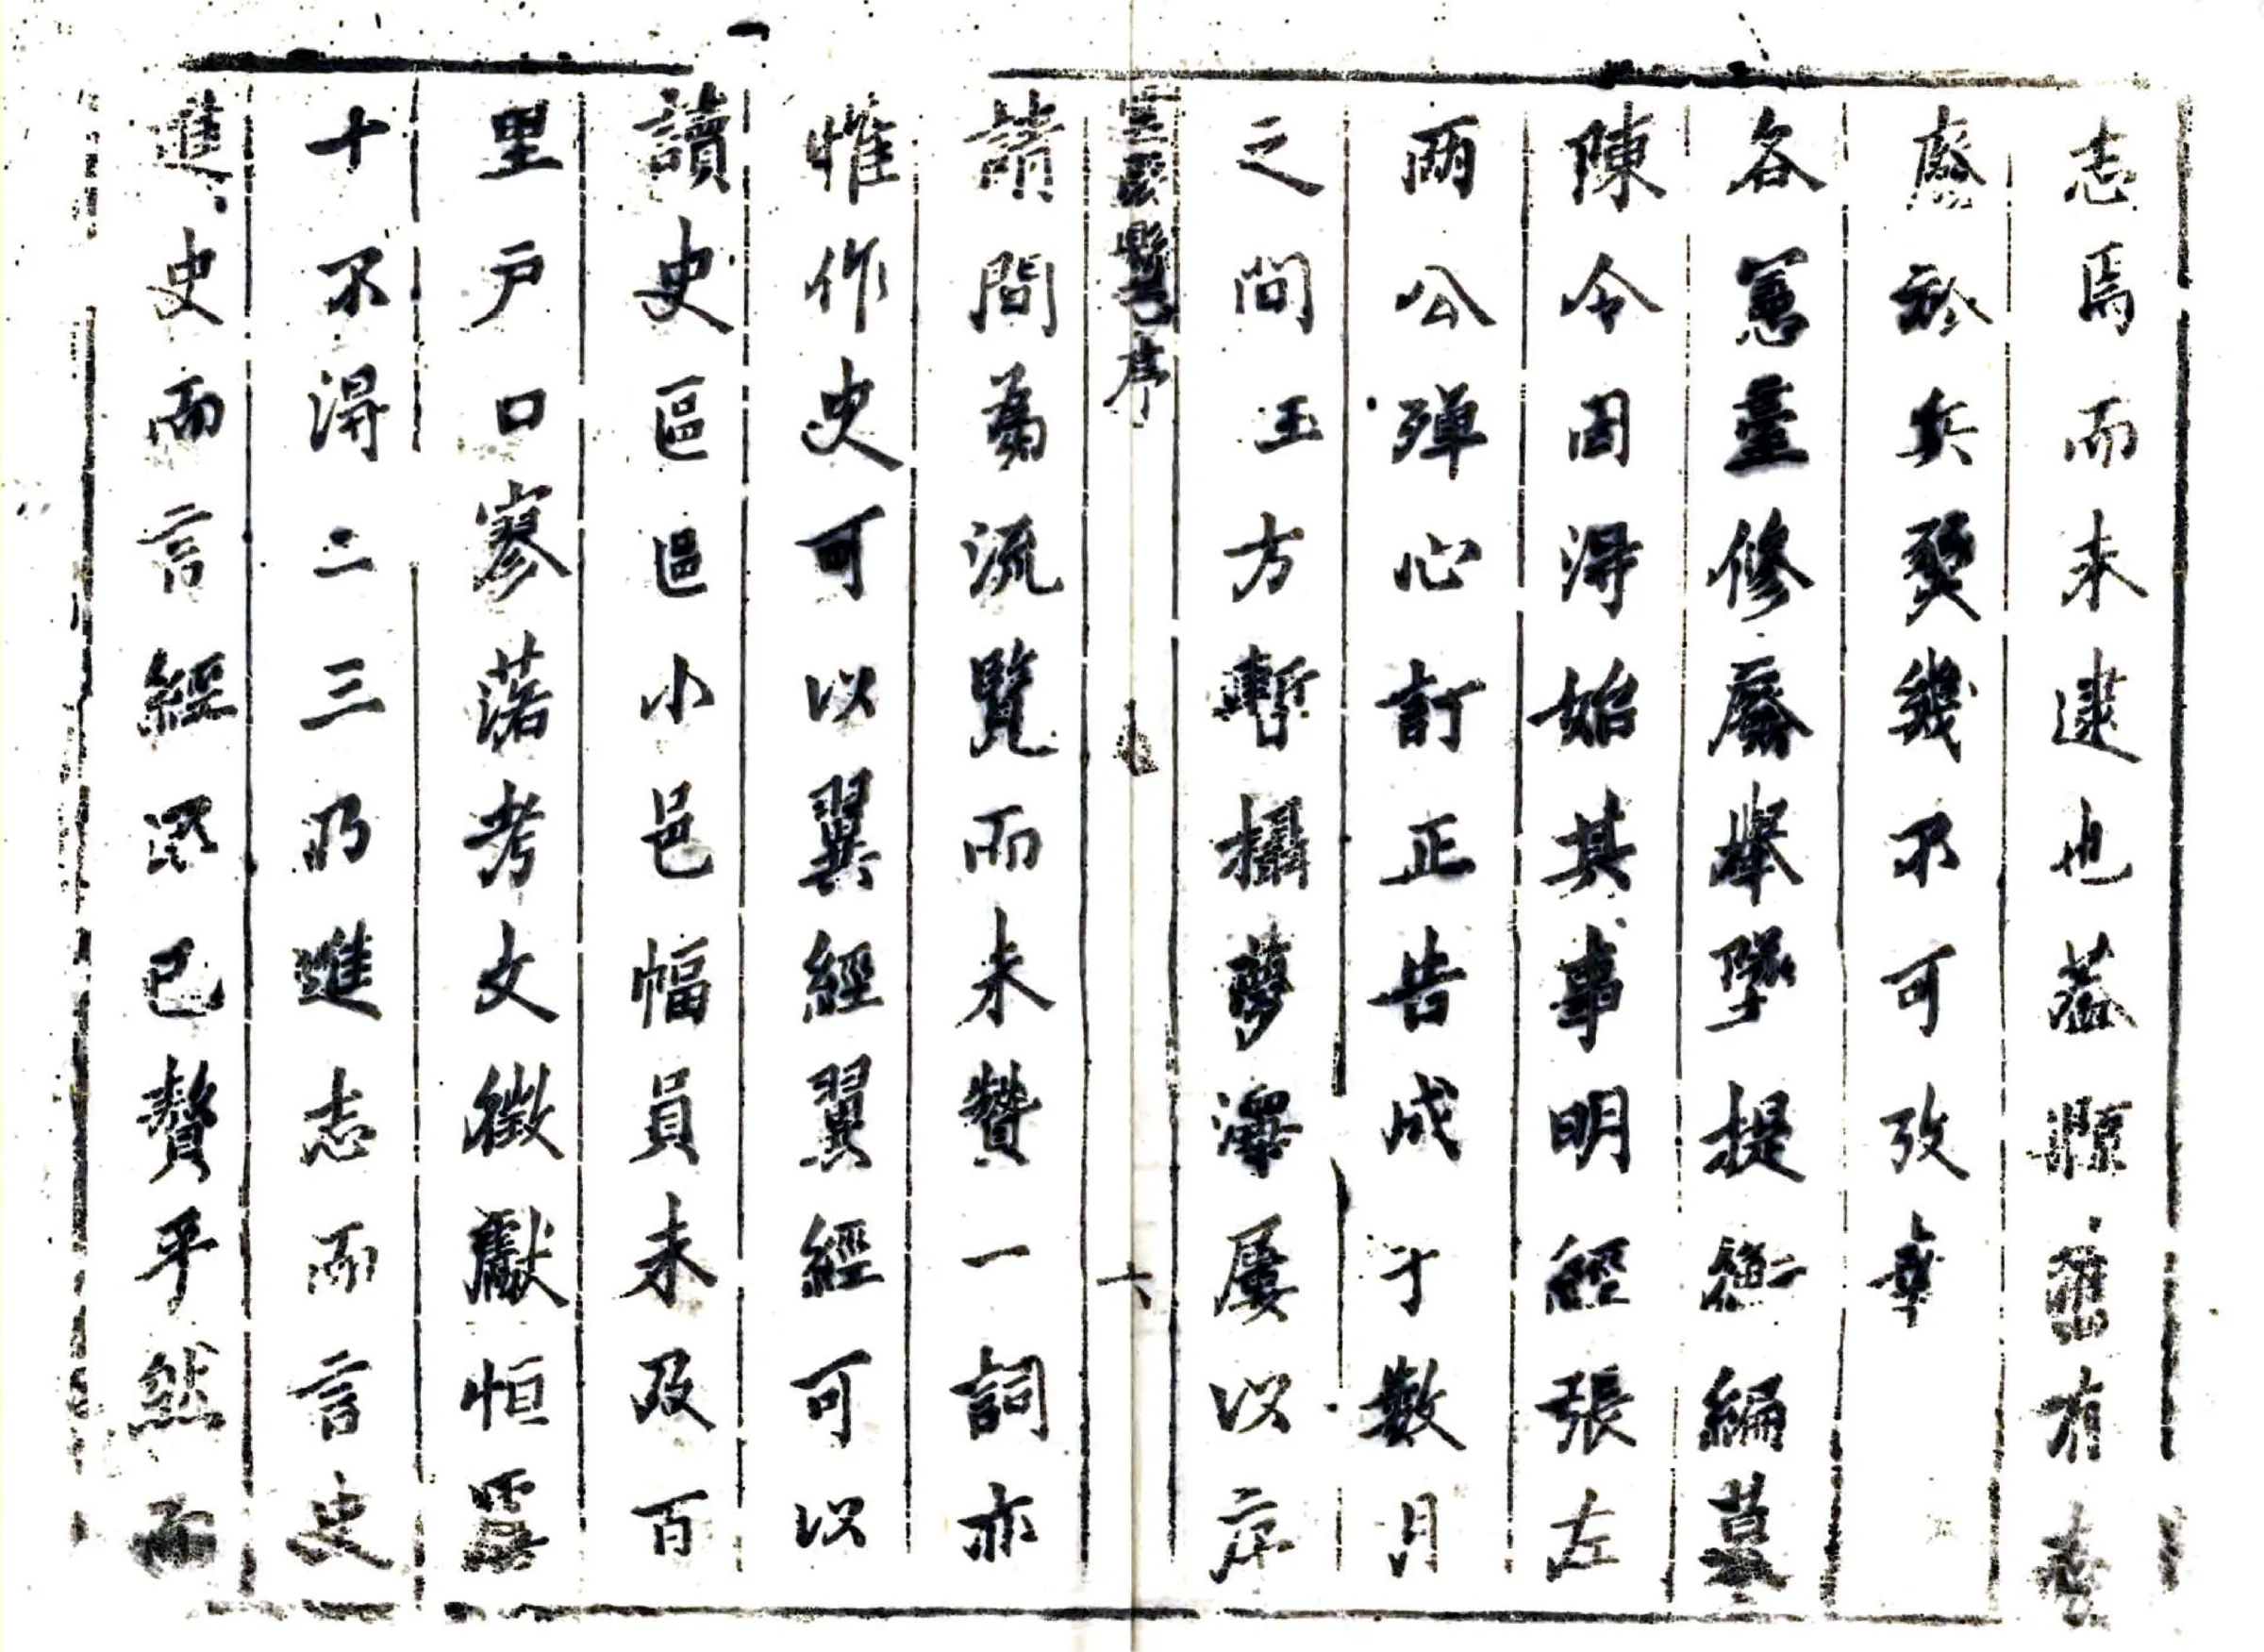 志焉而未逮也葢縣舊有志
廢於兵燹幾不可攷幸
各憲臺修廢舉墜提衡編摹
陳令因淂始其事明經張左
兩公殫心訂正告成于數月
之間王方暫攝夢澤屢以序
雲夢縣志序
六
請間蒭流覽而未贊一詞亦
惟作史可以翼經翼經可以
讀史區區小邑幅員未及百
里戶口寥落考文徵獻恒
十不淂二三乃進志而言史
進史而言經不已贅乎然而